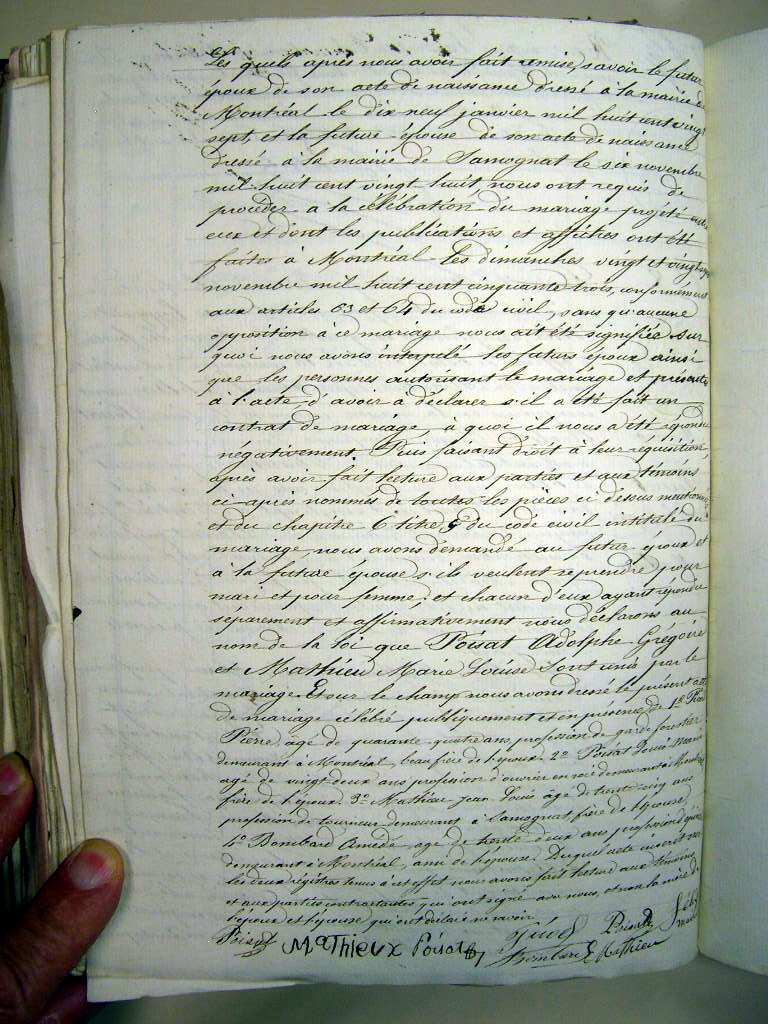 Les quels après nous avoir fait remise, savoir le futur
époux de son acte de naissance dressé à la mairie de
Montréal le dix neuf janvier mil huit cent vingt
sept, et la future épouse de son acte de naissance
dressé à la mairie de Samognat le six novembre
mil huit cent vingt huit, nous ont requis de
procéder a la célébration du mariage projeté entre
eux et dont les publications et affiches ont été
faites à Montréal les dimanches vingt et vingt
novembre mil huit cent cinquante trois, conformément
aux articles 63 et 64 du code civil, sans qu'aucune
opposition à ce mariage nous ait été signifiée sur
quoi nous avons interpelé les futurs époux ainsi
que les personnes autorisant le mariage et présente
à l'acte d'avoir à déclarer s'il a été fait un
contrat de mariage, à quoi il nous a été répondu
négativement. Puis faisant droit à leur réquisition,
après avoir fait lecture aux parties et aux témoins
ci-après nommés de toutes les pièces ci dessus mentionnées
et du chapitre 6 titre 5 du code civil intitulé du
mariage, nous avons demandé au futur époux et
à la future épouse s'ils veulent se prendre pour
mari et pour femme, et chacun d'eux ayant répondu
séparement et affirmativement nous déclarons au
nom de la loi que Poisat Adolphe Grégoire
et Mathieu Marie Louise sont unis par le
mariage. Et sur le champ nous avons dressé le présent acte
de mariage célébré publiquement et en présence de 1o
Pierre, âgé de quarante quatre ans, profession de garde forestier
demeurant à Montréal, beau frère de l'époux. 2o Poisat Louis Marie
agé de vingt deux ans profession d'ouvrier en soie demeurant à Montréal
frère de l'époux. 3o Mathieu Jean Louis âgé de trente cinq ans
profession de tourneur demeurant à Samognat frère de l'épouse
4o Bombard Amédé, agé de trente deux ans profession
demeurant à Montréal, ami de l'épouse. Duquel acte inscrit sur
les deux régistres tenus à cet effet nous avons fait lecture aux témoins
et aux parties contractantes qui ont signé avec nous, et non la mère de
l'époux et l'épouse qui ont déclaré ne savoir
Poisat Mathieux Poisat Poisat
Bombard Mathieu